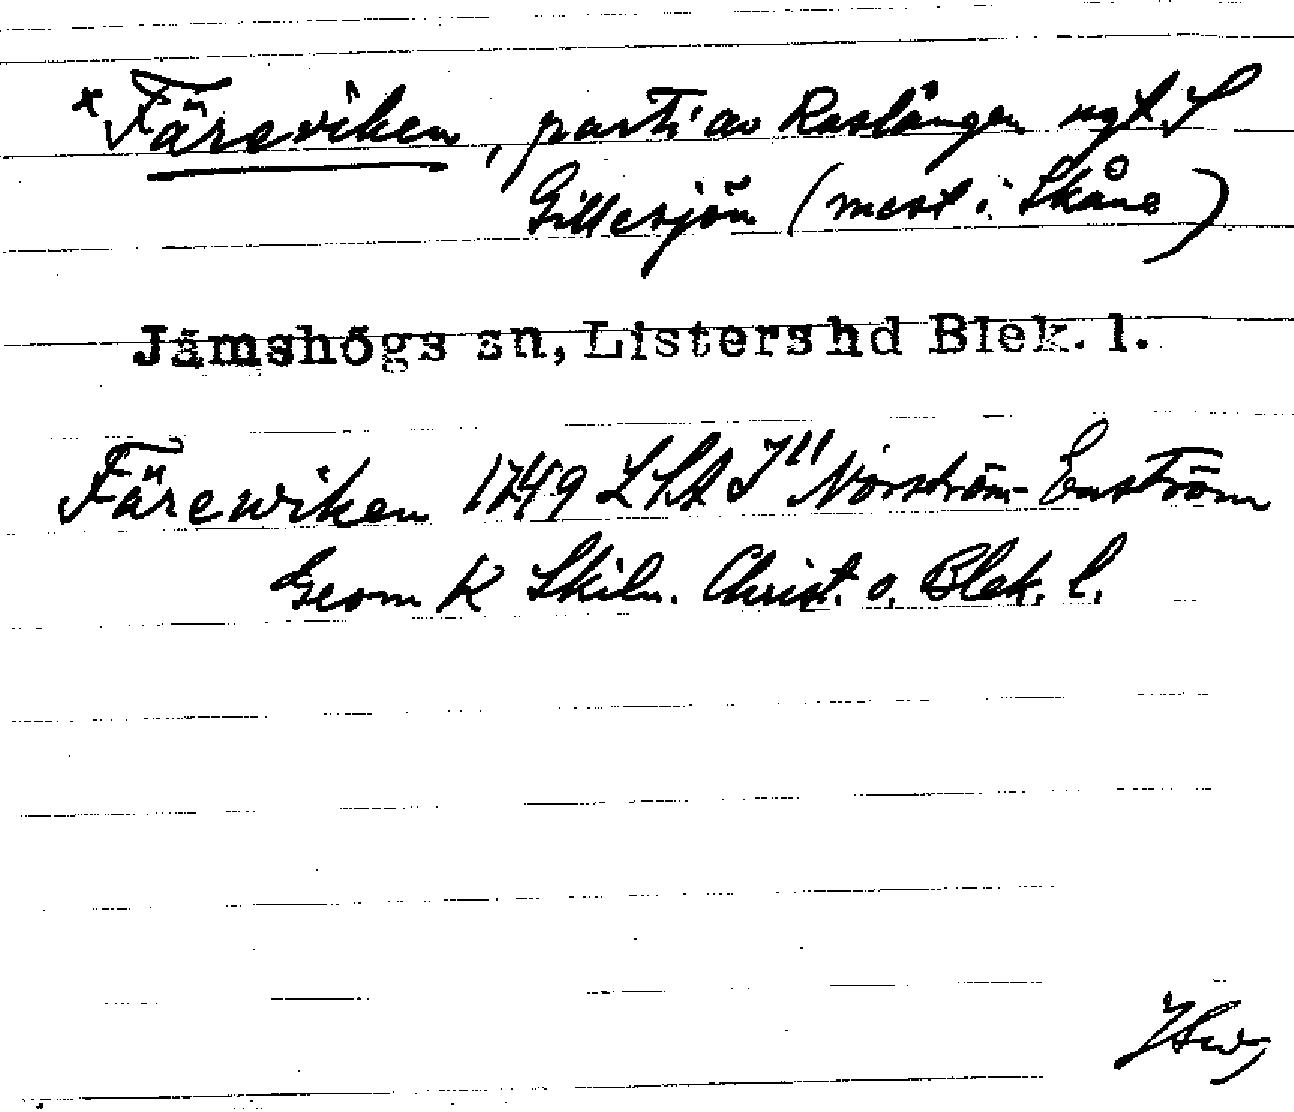 x Färeviken, parti av Raslången ngt S
Gillesjön (mest i Skåne)
Jämshögs sn, Listers hd Blek. l.
Färewiken 1749 LSA I" Norström-Enström
Geom K Skiln. Christ. o. Blek. l.